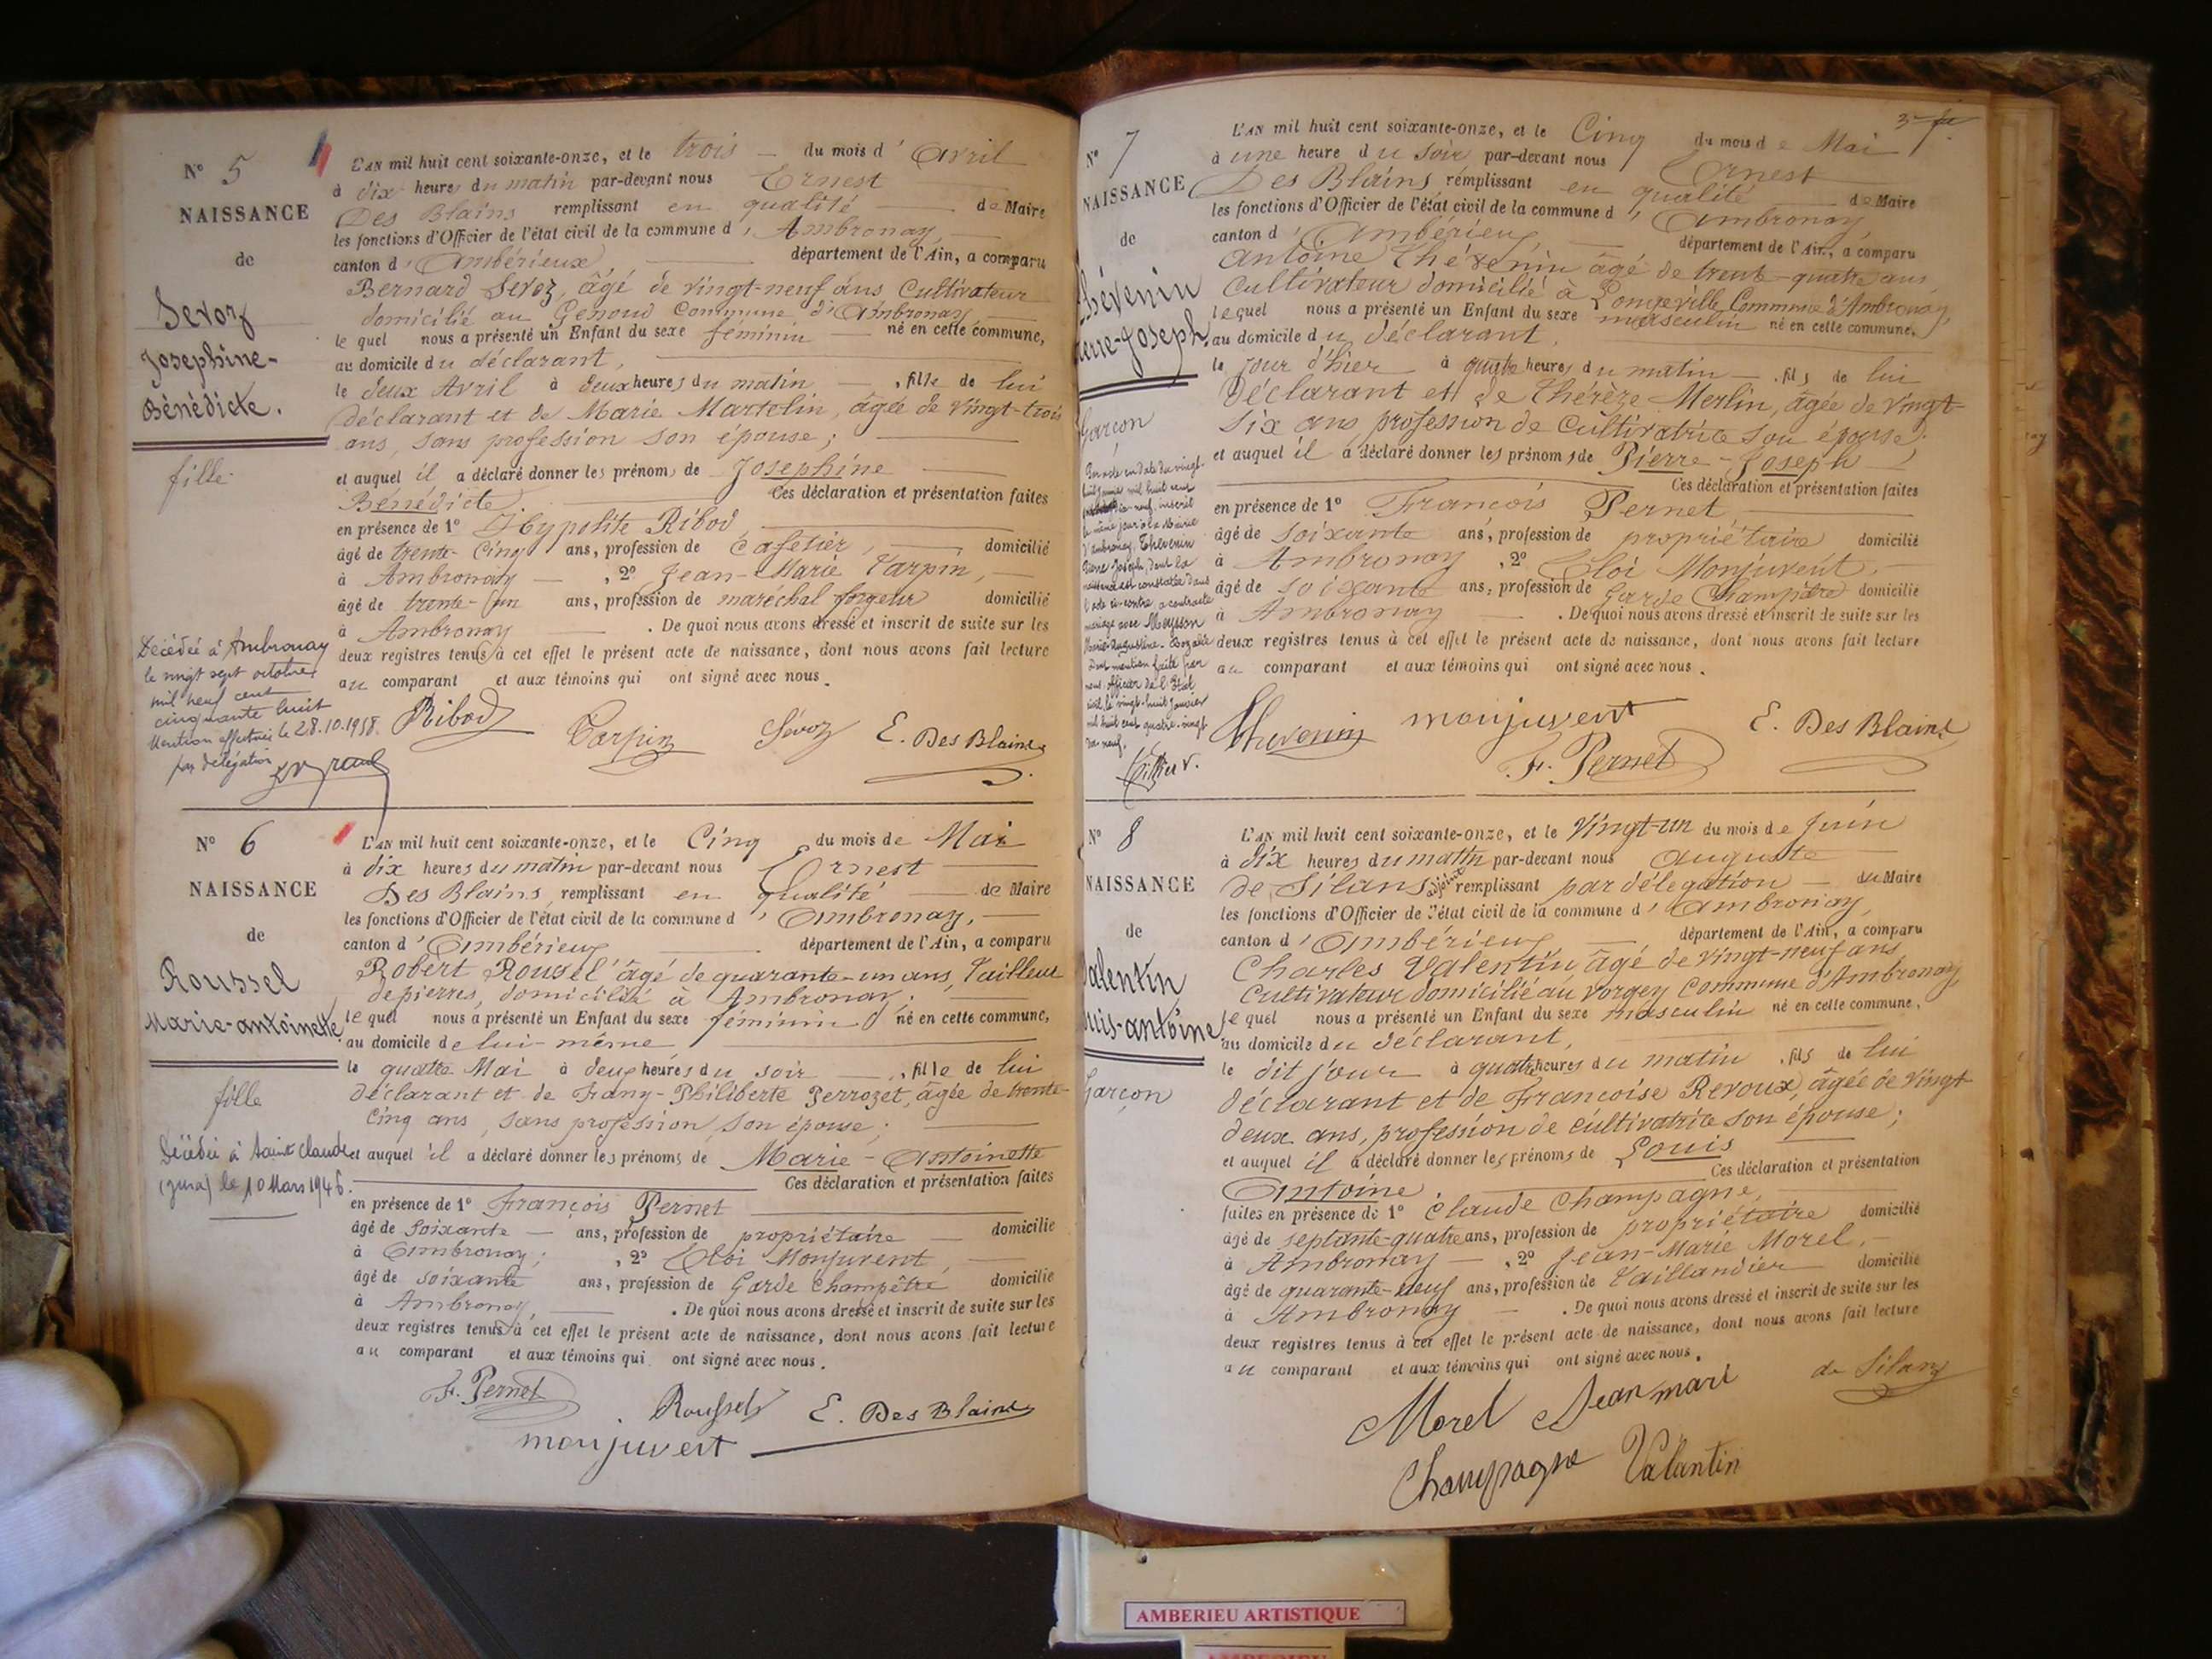 N° 5
NAISSANCE
de
Sevoz
Josephine-
Bénédicte.
fille
Décédée à Ambronay
le vingt sept octobre
mil neuf cent
cinquante huit
Mention effectuée le 28.10.1958.
par délégation
L'AN mil huit cent soixante-onze, et le trois du mois d'Avril
à dix heures du matin par-devant nous Ernest
Des Blains remplissant en qualité de Maire
les fonctions d'Officier de l'état civil de la commune d'Ambronay,
canton d'Ambérieux département de l'Ain, a comparu
Bernard Sevoz, âgé de vingt-neuf ans Cultivateur
domicilié au Genoud Commune d'Ambronay,
le quel nous a présenté un Enfant du sexe féminin né en cette commune,
au domicile du déclarant,
le deux Avril à deux heures du matin, fille de lui
déclarant et de Marie Martelin, âgée de vingt-trois
ans, sans profession son épouse;
et auquel il a déclaré donner les prénoms de Josephine
Bénédicte. Ces déclaration et présentation faites
en présence de 1° Hypolite Ribod,
âgé de trente-cinq ans, profession de cafetier, domicilié
à Ambronay, 2° Jean-Marie Tarpin,
âgé de trente-un ans, profession de maréchal forgeur domicilié
à Ambronay. De quoi nous avons dressé et inscrit de suite sur les
deux registres tenus à cet effet le présent acte de naissance, dont nous avons fait lecture
au comparant et aux témoins qui ont signé avec nous.
Ribod Tarpin Sévoz E. Des Blains
N° 6
NAISSANCE
de
Roussel
Marie-antoinette
fille
Décédée à Saint Claude
(Jura) le 10 Mars 1946.
L'AN mil huit cent soixante-onze, et le Cinq du mois de Mai
à dix heures du matin par-devant nous Ernest
Des Blains, remplissant en qualité de Maire
les fonctions d'Officier de l'état civil de la commune d'Ambronay,
canton d'Ambérieux département de l'Ain, a comparu
Robert Roussel âgé de quarante-un ans, Tailleur
de pierres, domicilié à Ambronay;
le quel nous a présenté un Enfant du sexe féminin né en cette commune,
au domicile de lui-même
le quatre Mai à deux heures du soir, fille de lui
déclarant et de Fany-Philiberte Perrozet, âgée de trente-
cinq ans, sans profession, son épouse;
et auquel il a déclaré donner les prénoms de Marie-Antoinette
Ces déclaration et présentation faites
en présence de 1° François Pernet
âgé de soixante ans, profession de propriétaire domicilié
à Ambronay; , 2° Eloi Monjuvent,
âgé de soixante ans, profession de Garde Champêtre domicilié
à Ambronay, . De quoi nous avons dressé et inscrit de suite sur les
deux registres tenus à cet effet le présent acte de naissance, dont nous avons fait lecture
au comparant et aux témoins qui ont signé avec nous.
F. Pernet Roussel E. Des Blains
monjuvert
3
N° 7
NAISSANCE
de
Thévenin
Pierre-Joseph.
Garçon
Par acte en date du vingt-
huit janvier mil huit cent
inscrit
le même jour à la Mairie
d'Ambronay, Thévenin
Pierre Joseph, dont la
naissance est constatée dans
l'acte ci-contre, a contracté
mariage avec Meysson
Marie-Augustine-Rosalie
Dont mention faite par
nous Officier de l'Etat
civil, le vingt-huit Janvier
mil huit cent quatre-vingt
dix neuf.
L'AN mil huit cent soixante-onze, et le Cinq du mois de Mai
à une heure du soir par-devant nous Ernest
Des Blains remplissant en qualité de Maire
les fonctions d'Officier de l'état civil de la commune d'Ambronay
canton d'Ambérieux, département de l'Ain, a comparu
Antoine Thévenin âgé de trente-quatre ans,
Cultivateur domicilié à Longeville Commune d'Ambronay,
lequel nous a présenté un Enfant du sexe masculin né en cette commune,
au domicile du déclarant,
le jour d'hier à quatre heures du matin, fils de lui
Déclarant et de Thérèse Merlin, âgée de vingt-
six ans profession de Cultivatrice son épouse;
et auquel il a déclaré donner les prénoms de Pierre-Joseph
Ces déclaration et présentation faites
en présence de 1° François Pernet
âgé de soixante ans, profession de propriétaire domicilié
à Ambronay, 2° Eloi Monjuvent,
âgé de soixante ans, profession de Garde Champêtre domicilié
à Ambronay. De quoi nous avons dressé et inscrit de suite sur les
deux registres tenus à cet effet le présent acte de naissance, dont nous avons fait lecture
au comparant et aux témoins qui ont signé avec nous.
Thevenin monjuvert E. Des Blains
F. Pernet
N° 8
NAISSANCE
de
Valentin
Louis-antoine
Garçon
L'AN mil huit cent soixante-onze, et le Vingt-un du mois de Juin
à dix heures du matin par-devant nous Auguste
de Silans adjoint remplissant par délégation du Maire
les fonctions d'Officier de l'état civil de la commune d'Ambronay,
canton d'Ambérieux département de l'Ain, a comparu
Charles Valentin, âgé de vingt-neuf ans
Cultivateur domicilié au Vorgey Commune d'Ambronay,
lequel nous a présenté un Enfant du sexe masculin né en cette commune,
au domicile du déclarant,
le dit jour à quatre heures du matin, fils de lui
déclarant et de Françoise Revoux, âgée de vingt
deux ans, profession de cultivatrice son épouse;
et auquel il a déclaré donner les prénoms de Louis
Antoine Ces déclaration et présentation
faites en présence de 1° Claude Champagne,
âgé de septante-quatre ans, profession de propriétaire domicilié
à Ambronay, 2° Jean-Marie Morel,
âgé de quarante-neuf ans, profession de Taillandier domicilié
à Ambronay. De quoi nous avons dressé et inscrit de suite sur les
deux registres tenus à cet effet le présent acte de naissance, dont nous avons fait lecture
au comparant et aux témoins qui ont signé avec nous.
de Silans
Morel Jean mari
Champagne Valantin
AMBERIEU ARTISTIQUE
AMBERIEU